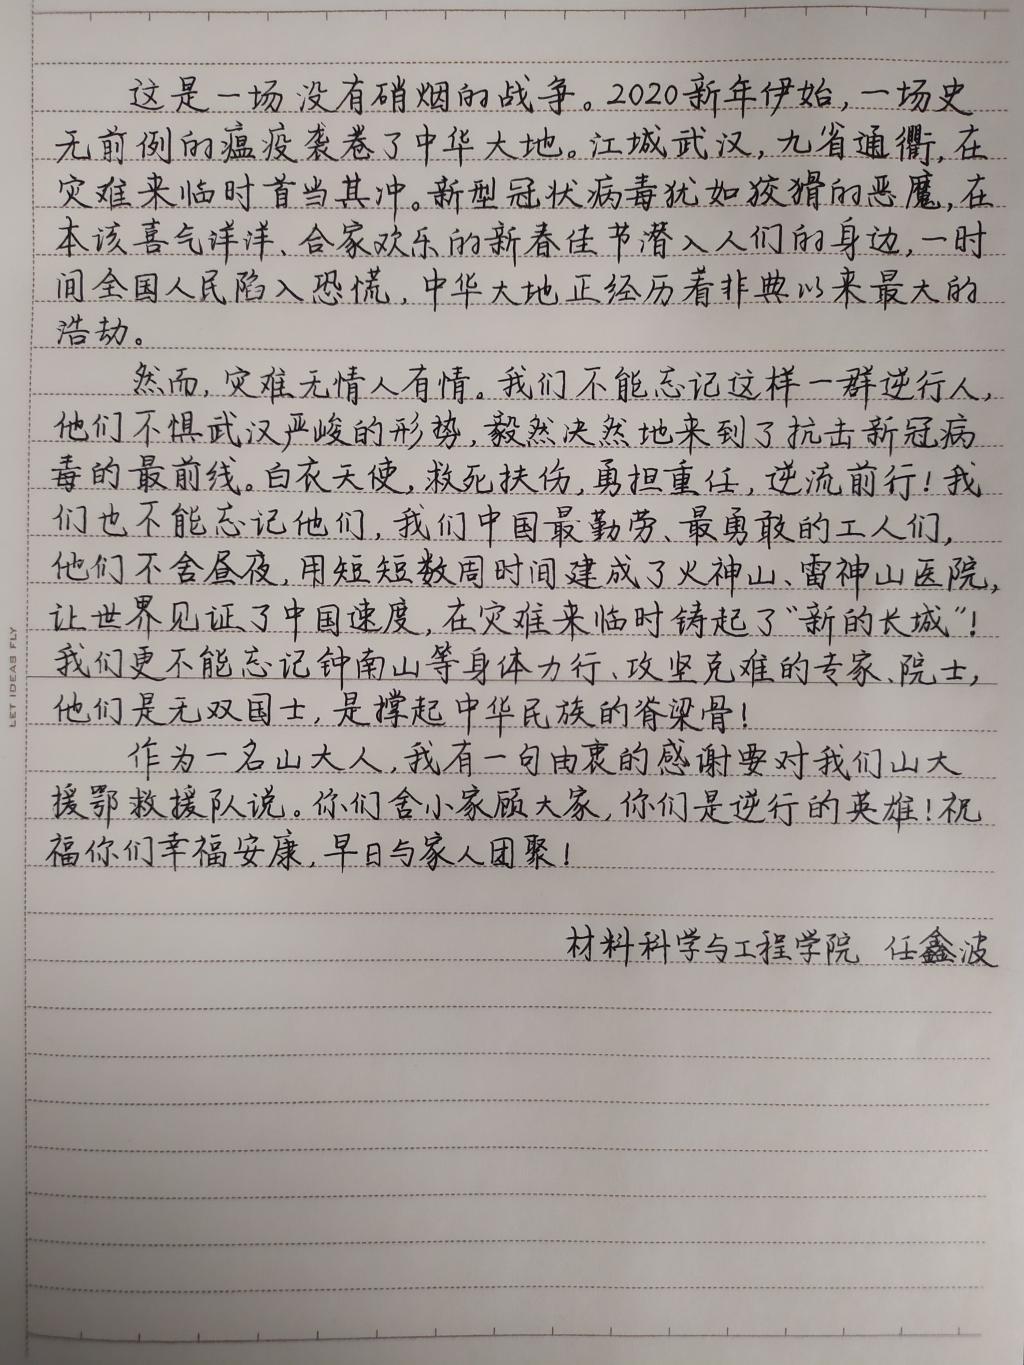 这是一场没有硝烟的战争。2020新年伊始，一场史
无前例的瘟疫袭卷了中华大地。江城武汉，九省通衢，在
灾难来临时首当其冲。新型冠状病毒犹如狡猾的恶魔，在
本该喜气洋洋、合家欢乐的新春佳节潜入人们的身边，一时
间全国人民陷入恐慌，中华大地正经历着非典以来最大的
浩劫。
然而，灾难无情人有情。我们不能忘记这样一群逆行人，
他们不惧武汉严峻的形势，毅然决然地来到了抗击新冠病
毒的最前线。白衣天使，救死扶伤，勇担重任，逆流前行！我
们也不能忘记他们，我们中国最勤劳、最勇敢的工人们，
他们不舍昼夜，用短短数周时间建成了火神山、雷神山医院，
让世界见证了中国速度，在灾难来临时铸起了“新的长城”！
我们更不能忘记钟南山等身体力行、攻坚克难的专家、院士，
他们是无双国士，是撑起中华民族的脊梁骨！
作为一名山大人，我有一句由衷的感谢要对我们山大
援鄂救援队说。你们舍小家顾大家，你们是逆行的英雄！祝
福你们幸福安康，早日与家人团聚！
材料科学与工程学院 任鑫波
LET IDEAS FLY